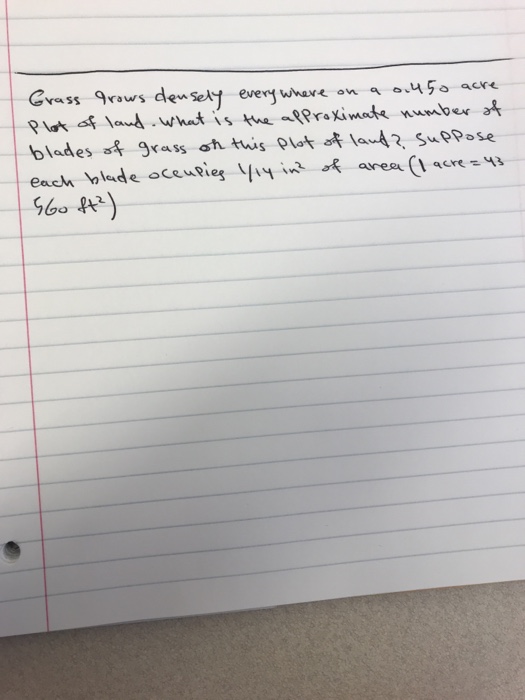 Grass grows densely everywhere on a 0.450 acre
Plot of land. What is the approximate number of
blades of grass on this Plot of land? Suppose
each blade occupies 1/14 in² of area (1 acre = 43
560 ft²)